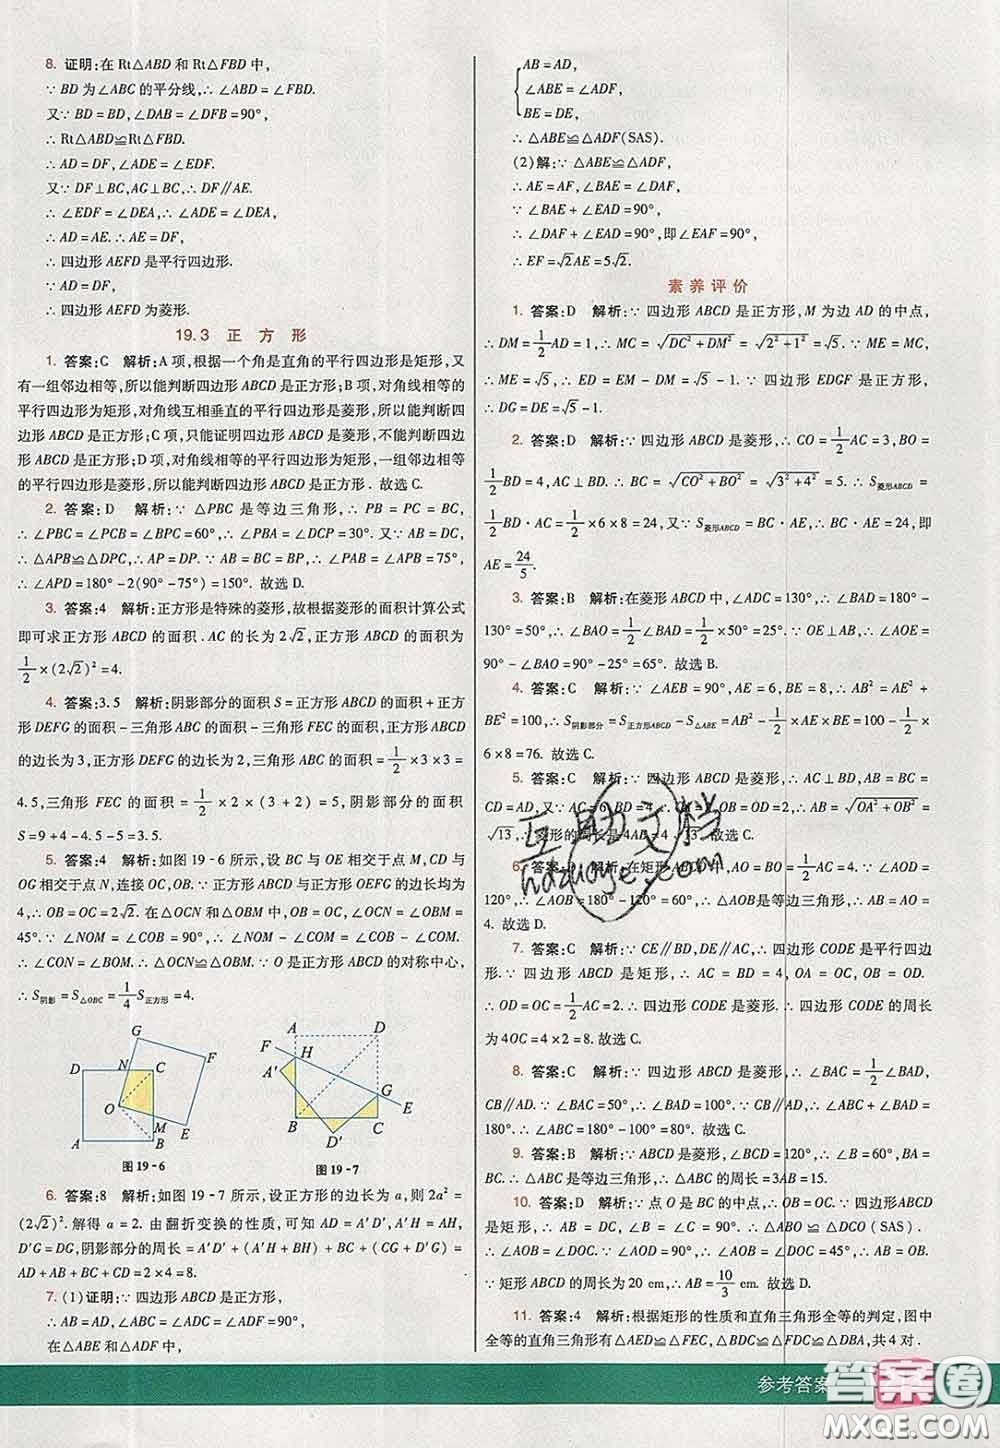 8. 证明:在 Rt△ABD 和 Rt△FBD 中,
∵ BD 为∠ABC 的平分线,∴ ∠ABD = ∠FBD.
又∵ BD = BD,∠DAB = ∠DFB = 90°,
∴ Rt△ABD≌Rt△FBD.
∴ AD = DF,∠ADE = ∠EDF.
又∵ DF⊥BC,AG⊥BC,∴ DF∥AE.
∴ ∠EDF = ∠DEA,∴ ∠ADE = ∠DEA,
∴ AD = AE.∴ AE = DF,
∴ 四边形 AEFD 是平行四边形.
∵ AD = DF,
∴ 四边形 AEFD 为菱形.
19.3 正 方 形
1. 答案:C 解析:A 项,根据一个角是直角的平行四边形是矩形,又
有一组邻边相等,所以能判断四边形 ABCD 是正方形;B 项,对角线相等的
平行四边形为矩形,对角线互相垂直的平行四边形是菱形,所以能判断四
边形 ABCD 是正方形;C 项,只能证明四边形 ABCD 是菱形,不能判断四边
形 ABCD 是正方形;D 项,对角线相等的平行四边形为矩形,一组邻边相等
的平行四边形是菱形,所以能判断四边形 ABCD 是正方形. 故选 C.
2. 答案:D 解析:∵ △PBC 是等边三角形,∴ PB = PC = BC,
∴ ∠PBC = ∠PCB = ∠BPC = 60°,∴ ∠PBA = ∠DCP = 30°. 又∵ AB = DC,
∴ △APB≌△DPC,∴ AP = DP. ∵ AB = BC = BP,∴ ∠BAP = ∠APB = 75°,
∴ ∠APD = 180° - 2(90° - 75°) = 150°. 故选 D.
3. 答案:4 解析:正方形是特殊的菱形,故根据菱形的面积计算公式
即可求正方形 ABCD 的面积. AC 的长为 2√2,∴ 正方形 ABCD 的面积为
1/2 × (2√2)² = 4.
4. 答案:3.5 解析:阴影部分的面积 S = 正方形 ABCD 的面积 + 正方
形 DEFG 的面积 - 三角形 ABC 的面积 - 三角形 FEC 的面积,正方形 ABCD
的边长为 3,正方形 DEFG 的边长为 2,三角形 ABC 的面积 = 1/2 × 3 × 3 =
4.5,三角形 FEC 的面积 = 1/2 × 2 × (3 + 2) = 5,阴影部分的面积
S = 9 + 4 - 4.5 - 5 = 3.5.
5. 答案:4 解析:如图 19 - 6 所示,设 BC 与 OE 相交于点 M,CD 与
OG 相交于点 N,连接 OC,OB. ∵ 正方形 ABCD 和正方形 OEFG 的边长均为
4,∴ OB = OC = 2√2. 在△OCN 和△OBM 中,OB = OC,∠OCN = ∠OBM =
45°. ∵ ∠NOM = ∠COB = 90°,∴ ∠NOM - ∠COM = ∠COB - ∠COM,
∴ ∠CON = ∠BOM,∴ △OCN≌△OBM. ∵ O 是正方形 ABCD 的对称中心,
∴ S阴影 = S△OBC = 1/4 S正方形 = 4.
G
F
D
N
C
O
M
E
A
B
图 19 - 6
A
D
F
H
A′
G
E
B
C
D′
图 19 - 7
6. 答案:8 解析:如图 19 - 7 所示,设正方形的边长为 a,则 2a² =
(2√2)². 解得 a = 2. 由翻折变换的性质,可知 AD = A′D′,A′H = AH,
D′G = DG,阴影部分的周长 = A′D′ + (A′H + BH) + BC + (CG + D′G) =
AD + AB + BC + CD = 2 × 4 = 8.
7. (1)证明:∵ 四边形 ABCD 是正方形,
∴ AB = AD,∠ABC = ∠D = ∠BAD = 90°,∴ ∠ABE = 90°.
在△ABE 和△ADF 中,
AB = AD,
∠ABE = ∠ADF,
BE = DE,
∴ △ABE≌△ADF(SAS).
(2)解:∵ △ABE≌△ADF,
∴ AE = AF,∠BAE = ∠DAF.
∵ ∠BAE + ∠EAD = 90°,
∴ ∠DAF + ∠EAD = 90°,即∠EAF = 90°,
∴ EF = √2AE = 5√2.
素养评价
1. 答案:D 解析:∵ 四边形 ABCD 是正方形,M 为边 AD 的中点,
∴ DM = 1/2 AD = 1/2 DC = 1,∴ MC = √(DC² + DM²) = √(2² + 1²) = √5. ∵ ME = MC,
∴ ME = √5,∴ ED = EM - DM = √5 - 1. ∵ 四边形 EDGF 是正方形,
∴ DG = DE = √5 - 1.
2. 答案:D 解析:∵ 四边形 ABCD 是菱形,∴ CO = 1/2 AC = 3,BO =
1/2 BD = 4,AC⊥BD. ∴ BC = √(CO² + BO²) = √(3² + 4²) = 5. ∴ S菱形ABCD =
1/2 BD · AC = 1/2 × 6 × 8 = 24,又∵ S菱形ABCD = BC · AE,∴ BC · AE = 24,即
AE = 24/5.
3. 答案:B 解析:在菱形 ABCD 中,∠ADC = 130°,∴ ∠BAD = 180° -
130° = 50°,∴ ∠BAO = 1/2 ∠BAD = 1/2 × 50° = 25°. ∵ OE⊥AB,∴ ∠AOE =
90° - ∠BAO = 90° - 25° = 65°. 故选 B.
4. 答案:C 解析:∵ ∠AEB = 90°,AE = 6,BE = 8,∴ AB² = AE² +
BE² = 100,∴ S阴影部分 = S正方形ABCD - S△ABE = AB² - 1/2 × AE × BE = 100 - 1/2 ×
6 × 8 = 76. 故选 C.
5. 答案:C 解析:∵ 四边形 ABCD 是菱形,∴ AC⊥BD,AB = BC =
CD = DA,又∵ AC = 6,BD = 4,∴ AO = OC = 3,OB = OD = 2. ∴ AB = √(OA² + OB²) =
√13,∴ 菱形的周长是 4AB = 4√13. 故选 C.
6. 答案:D 解析:在矩形 ABCD 中,AO = BO = 1/2 AC = 4. ∵ ∠AOD =
120°,∴ ∠AOB = 180° - 120° = 60°,∴ △AOB 是等边三角形,∴ AB = AO =
4. 故选 D.
7. 答案:C 解析:∵ CE∥BD,DE∥AC,∴ 四边形 CODE 是平行四边
形. ∵ 四边形 ABCD 是矩形,∴ AC = BD = 4,OA = OC,OB = OD.
∴ OD = OC = 1/2 AC = 2. ∴ 四边形 CODE 是菱形. ∴ 四边形 CODE 的周长
为 4OC = 4 × 2 = 8. 故选 C.
8. 答案:C 解析:∵ 四边形 ABCD 是菱形,∴ ∠BAC = 1/2 ∠BAD,
CB∥AD. ∵ ∠BAC = 50°,∴ ∠BAD = 100°. ∵ CB∥AD,∴ ∠ABC + ∠BAD =
180°. ∴ ∠ABC = 180° - 100° = 80°. 故选 C.
9. 答案:B 解析:∵ ABCD 是菱形,∠BCD = 120°,∴ ∠B = 60°,
BA = BC. ∴ △ABC 是等边三角形,∴ △ABC 的周长 = 3AB = 15.
10. 答案:D 解析:∵ 点 O 是 BC 的中点,∴ OB = OC. ∵ 四边形ABCD
是矩形,∴ AB = DC,∠B = ∠C = 90°. ∴ △ABO≌△DCO (SAS).
∴ ∠AOB = ∠DOC. ∵ ∠AOD = 90°,∴ ∠AOB = ∠DOC = 45°,∴ AB = OB.
∵ 矩形 ABCD 的周长为 20 cm,∴ AB = 10/3 cm. 故选 D.
11. 答案:4 解析:根据矩形的性质和直角三角形全等的判定,图中
全等的直角三角形有△AED≌△FEC,△BDC≌△FDC≌△DBA,共 4 对.
互助文档
hdzuoye.com
参考答案
答案圈
MXQE.COM